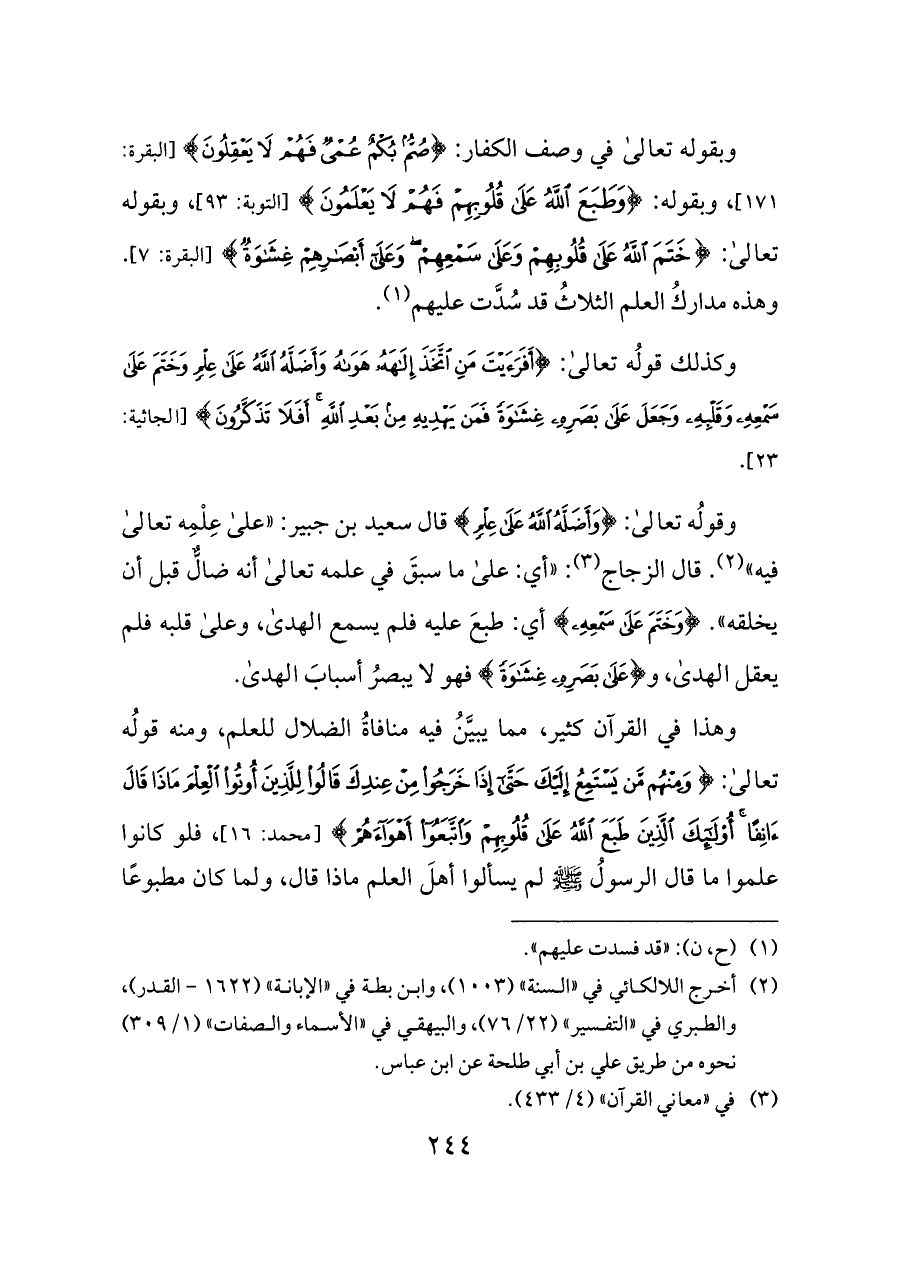 وبقوله تعالىٰ في وصف الكفار: ﴿صُمٌّۢ بُكْمٌ عُمْىٌ فَهُمْ لَا يَعْقِلُونَ﴾ [البقرة:
١٧١]، وبقوله: ﴿وَطَبَعَ ٱللَّهُ عَلَىٰ قُلُوبِهِمْ فَهُمْ لَا يَعْلَمُونَ﴾ [التوبة: ٩٣]، وبقوله
تعالىٰ: ﴿خَتَمَ ٱللَّهُ عَلَىٰ قُلُوبِهِمْ وَعَلَىٰ سَمْعِهِمْ ۖ وَعَلَىٰٓ أَبْصَٰرِهِمْ غِشَٰوَةٌ﴾ [البقرة: ٧].
وهذه مداركُ العلم الثلاثُ قد سُدَّت عليهم(١).
وكذلك قولُه تعالىٰ: ﴿أَفَرَءَيْتَ مَنِ ٱتَّخَذَ إِلَٰهَهُۥ هَوَىٰهُ وَأَضَلَّهُ ٱللَّهُ عَلَىٰ عِلْمٍ وَخَتَمَ عَلَىٰ
سَمْعِهِۦ وَقَلْبِهِۦ وَجَعَلَ عَلَىٰ بَصَرِهِۦ غِشَٰوَةً فَمَن يَهْدِيهِ مِنۢ بَعْدِ ٱللَّهِ ۚ أَفَلَا تَذَكَّرُونَ﴾ [الجاثية:
٢٣].
وقولُه تعالىٰ: ﴿وَأَضَلَّهُ ٱللَّهُ عَلَىٰ عِلْمٍ﴾ قال سعيد بن جبير: «علىٰ عِلْمِه تعالىٰ
فيه»(٢). قال الزجاج(٣): «أي: علىٰ ما سبقَ في علمه تعالىٰ أنه ضالٌّ قبل أن
يخلقه». ﴿وَخَتَمَ عَلَىٰ سَمْعِهِۦ﴾ أي: طبعَ عليه فلم يسمع الهدىٰ، وعلىٰ قلبه فلم
يعقل الهدىٰ، و﴿عَلَىٰ بَصَرِهِۦ غِشَٰوَةً﴾ فهو لا يبصرُ أسبابَ الهدىٰ.
وهذا في القرآن كثير، مما يبيَّنُ فيه منافاةُ الضلال للعلم، ومنه قولُه
تعالىٰ: ﴿وَمِنْهُم مَّن يَسْتَمِعُ إِلَيْكَ حَتَّىٰٓ إِذَا خَرَجُوا۟ مِنْ عِندِكَ قَالُوا۟ لِلَّذِينَ أُوتُوا۟ ٱلْعِلْمَ مَاذَا قَالَ
ءَانِفًا ۚ أُو۟لَٰٓئِكَ ٱلَّذِينَ طَبَعَ ٱللَّهُ عَلَىٰ قُلُوبِهِمْ وَٱتَّبَعُوٓا۟ أَهْوَآءَهُمْ﴾ [محمد: ١٦]، فلو كانوا
علموا ما قال الرسولُ ﷺ لم يسألوا أهلَ العلم ماذا قال، ولما كان مطبوعًا
(١) (ح، ن): «قد فسدت عليهم».
(٢) أخرج اللالكائي في «السنة» (١٠٠٣)، وابن بطة في «الإبانة» (١٦٢٢ - القدر)،
والطبري في «التفسير» (٢٢/ ٧٦)، والبيهقي في «الأسماء والصفات» (١/ ٣٠٩)
نحوه من طريق علي بن أبي طلحة عن ابن عباس.
(٣) في «معاني القرآن» (٤/ ٤٣٣).
٢٤٤